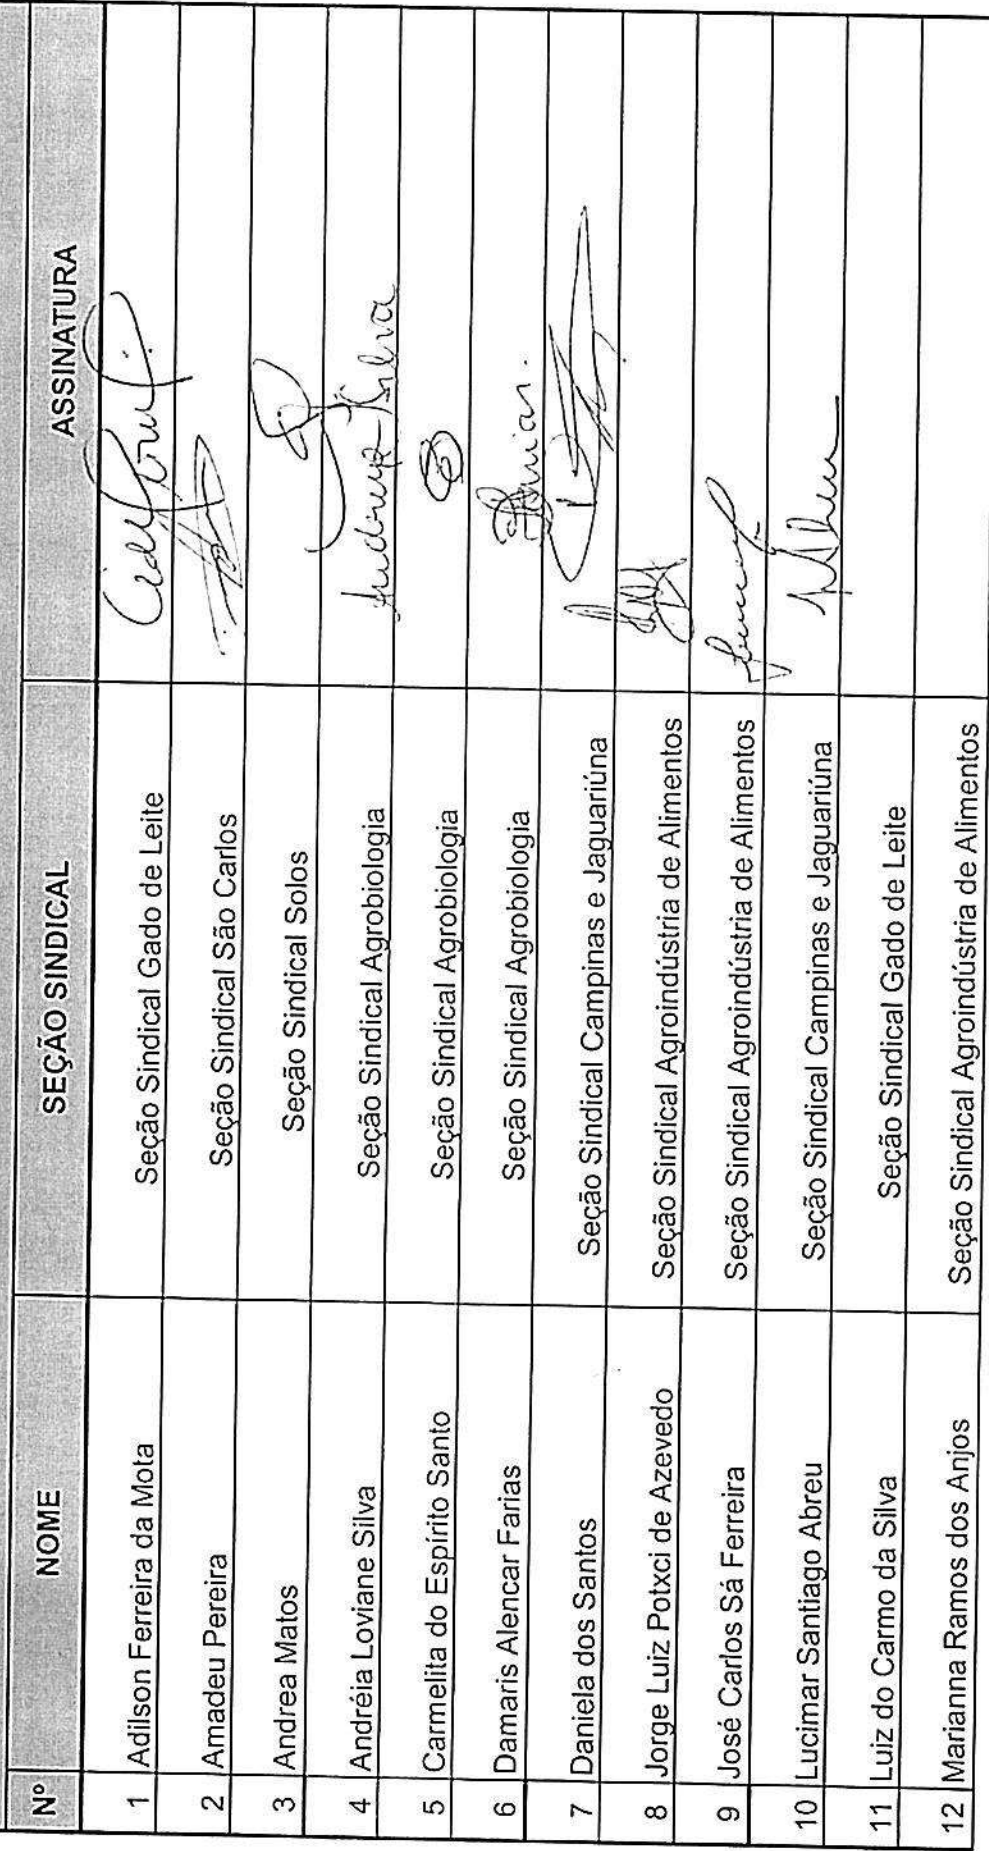 Nº NOME SEÇÃO SINDICAL ASSINATURA
1 Adilson Ferreira da Mota Seção Sindical Gado de Leite
2 Amadeu Pereira Seção Sindical São Carlos
3 Andrea Matos Seção Sindical Solos
4 Andréia Loviane Silva Seção Sindical Agrobiologia Silva
5 Carmelita do Espírito Santo Seção Sindical Agrobiologia
6 Damaris Alencar Farias Seção Sindical Agrobiologia
7 Daniela dos Santos Seção Sindical Campinas e Jaguariúna
8 Jorge Luiz Potxci de Azevedo Seção Sindical Agroindústria de Alimentos
9 José Carlos Sá Ferreira Seção Sindical Agroindústria de Alimentos
10 Lucimar Santiago Abreu Seção Sindical Campinas e Jaguariúna
11 Luiz do Carmo da Silva Seção Sindical Gado de Leite
12 Marianna Ramos dos Anjos Seção Sindical Agroindústria de Alimentos